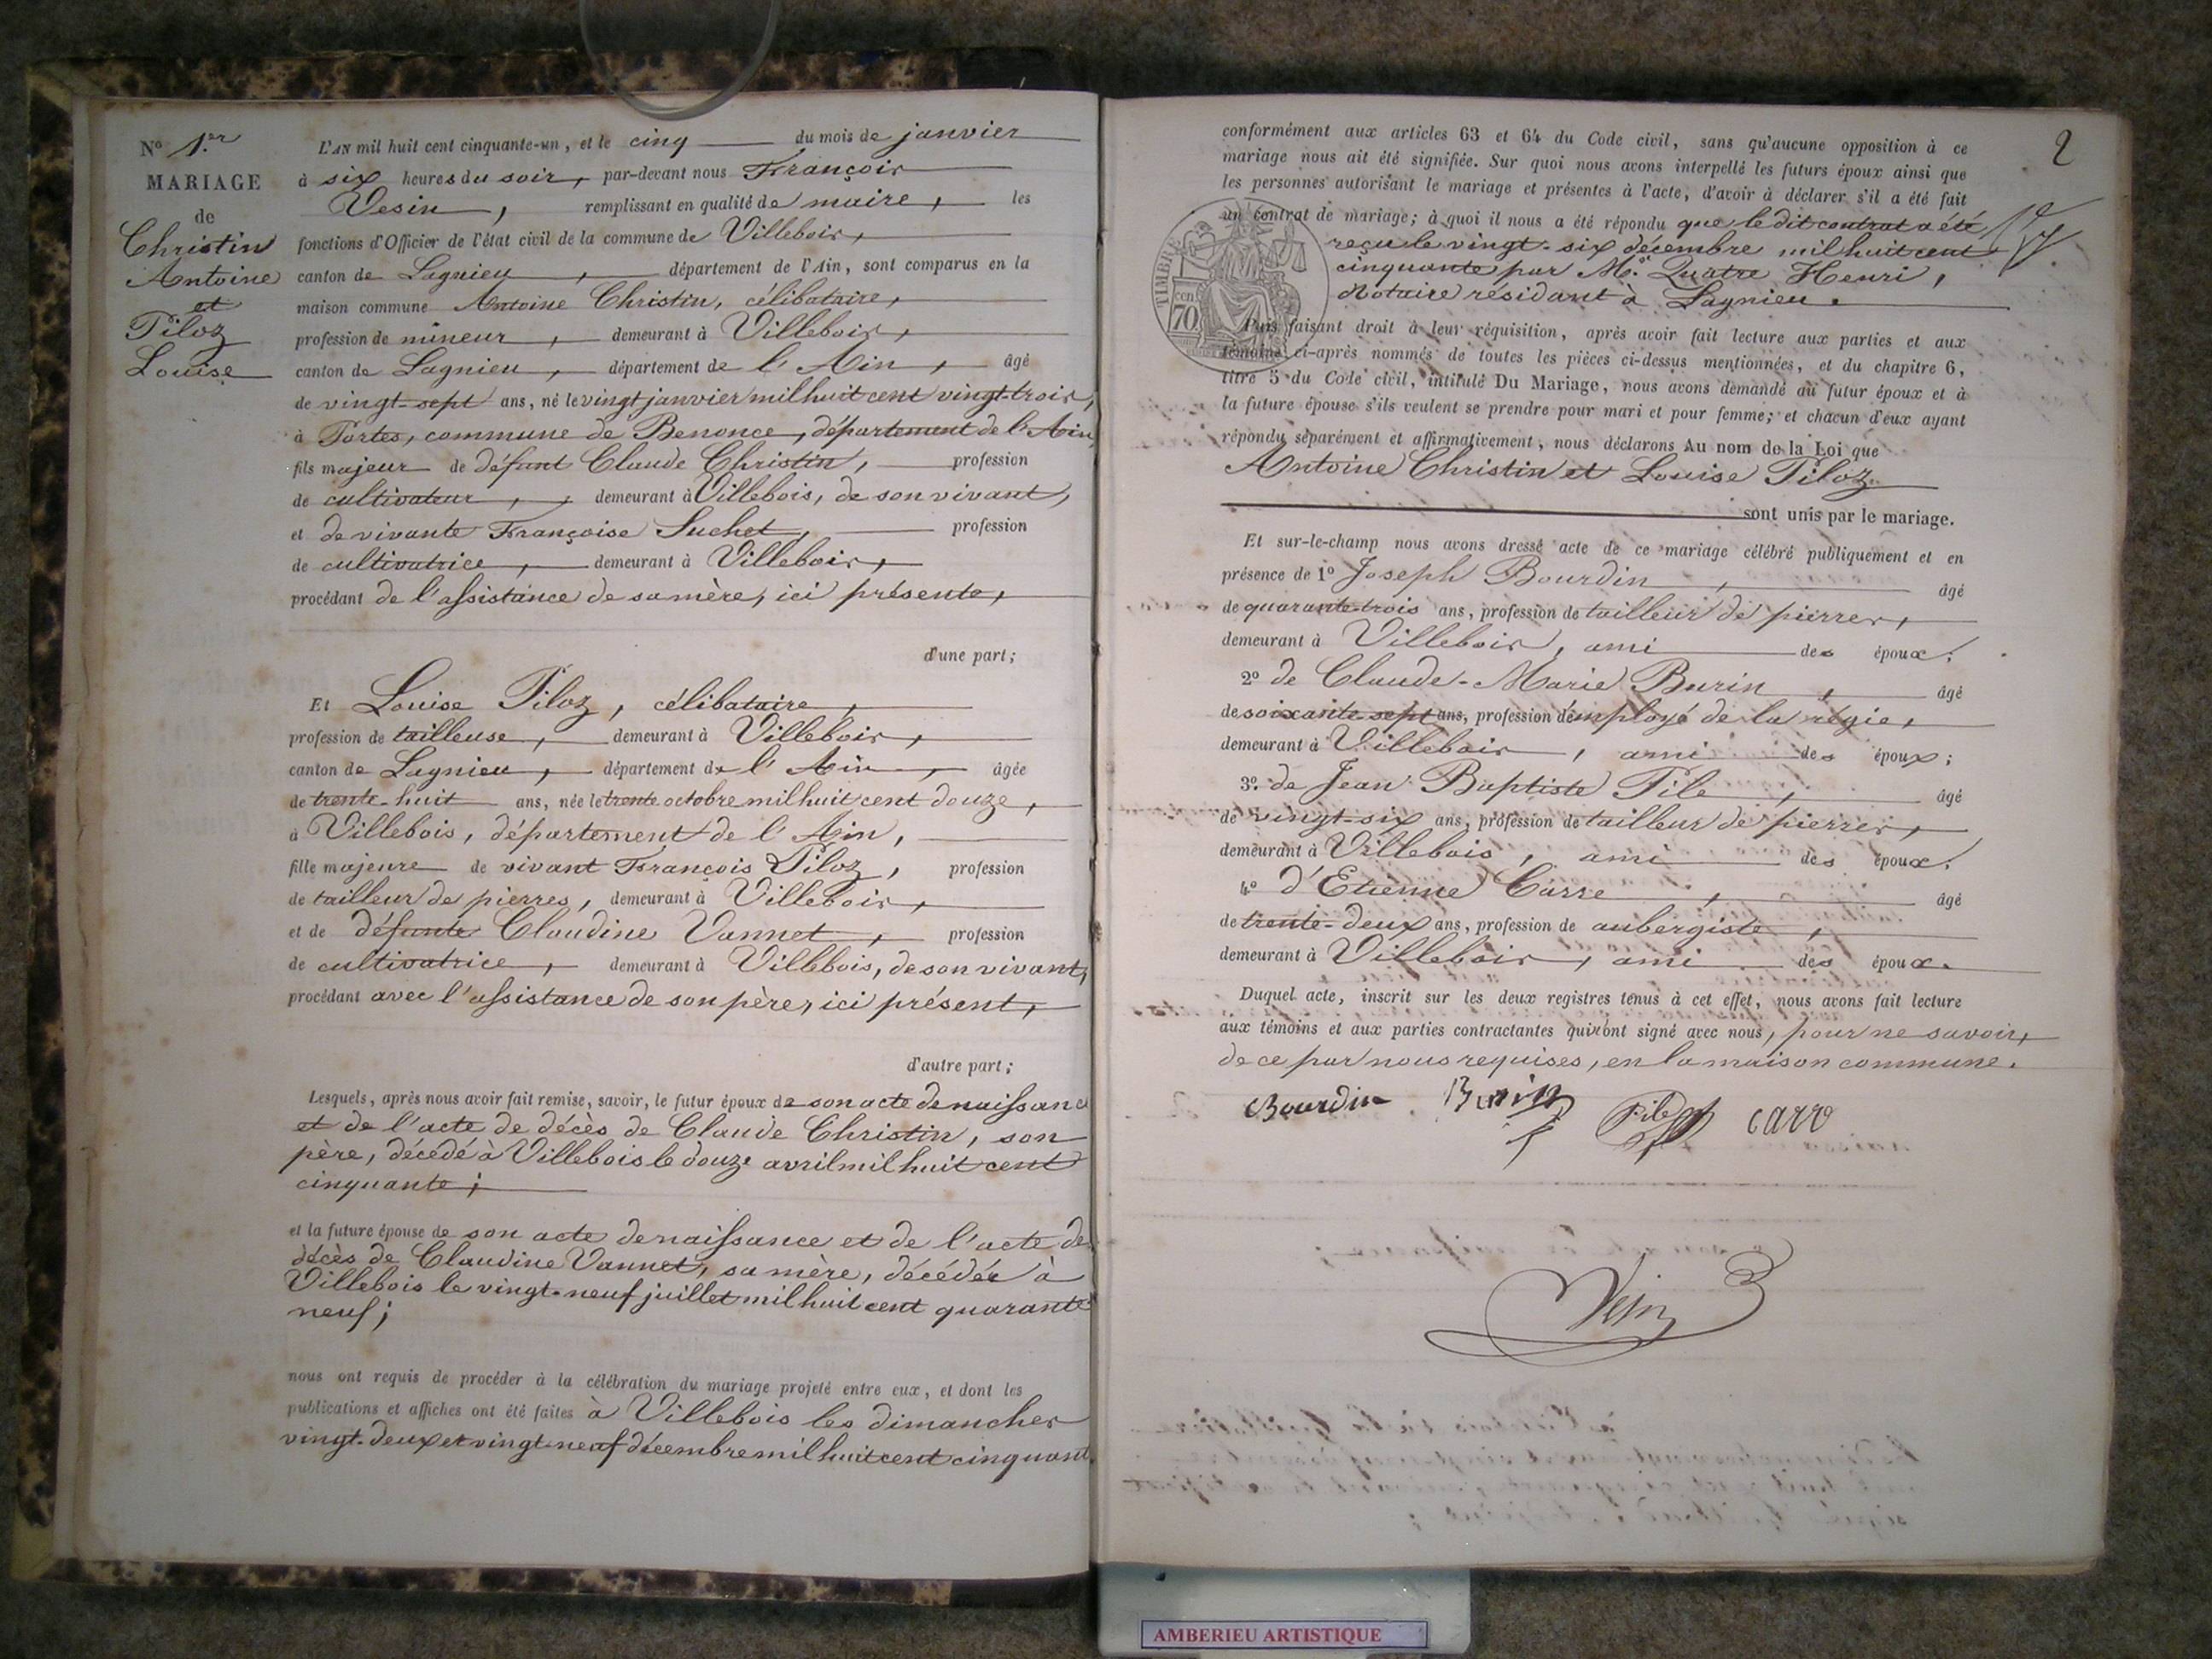 N° 1.er
MARIAGE
de
Christin
Antoine
et
Piloz
Louise
L'AN mil huit cent cinquante-un, et le cinq du mois de janvier
à six heures du soir, par-devant nous François
Vesin, remplissant en qualité de maire, les
fonctions d'Officier de l'état civil de la commune de Villebois,
canton de Lagnieu, département de l'Ain, sont comparus en la
maison commune Antoine Christin, célibataire,
profession de mineur, demeurant à Villebois,
canton de Lagnieu, département de l'Ain, âgé
de vingt-sept ans, né le vingt janvier mil huit cent vingt-trois,
à Portes, commune de Benonce, département de l'Ain,
fils majeur de défunt Claude Christin, profession
de cultivateur, demeurant à Villebois, de son vivant,
et de vivante Françoise Suchet, profession
de cultivatrice, demeurant à Villebois,
procédant de l'assistance de sa mère, ici présente,
d'une part;
Et Louise Piloz, célibataire,
profession de tailleuse, demeurant à Villebois,
canton de Lagnieu, département de l'Ain, âgée
de trente-huit ans, née le trente octobre mil huit cent douze,
à Villebois, département de l'Ain,
fille majeure de vivant François Piloz, profession
de tailleur de pierres, demeurant à Villebois,
et de défunte Claudine Vannet, profession
de cultivatrice, demeurant à Villebois, de son vivant,
procédant avec l'assistance de son père, ici présent,
d'autre part;
Lesquels, après nous avoir fait remise, savoir, le futur époux de son acte de naissance
et de l'acte de décès de Claude Christin, son
père, décédé à Villebois le douze avril mil huit cent
cinquante;
et la future épouse de son acte de naissance et de l'acte de
décès de Claudine Vannet, sa mère, décédée à
Villebois le vingt-neuf juillet mil huit cent quarante
neuf;
nous ont requis de procéder à la célébration du mariage projeté entre eux, et dont les
publications et affiches ont été faites à Villebois les dimanches
vingt-deux et vingt-neuf décembre mil huit cent cinquante
2
conformément aux articles 63 et 64 du Code civil, sans qu'aucune opposition à ce
mariage nous ait été signifiée. Sur quoi nous avons interpellé les futurs époux ainsi que
les personnes autorisant le mariage et présentes à l'acte, d'avoir à déclarer s'il a été fait
un contrat de mariage; à quoi il nous a été répondu que le dit contrat a été
reçu le vingt-six décembre mil huit cent
cinquante par M.e Quatre Henri,
Notaire résidant à Lagnieu.
TIMBRE
cen
70
Puis faisant droit à leur réquisition, après avoir fait lecture aux parties et aux
témoins ci-après nommés de toutes les pièces ci-dessus mentionnées, et du chapitre 6,
titre 5 du Code civil, intitulé Du Mariage, nous avons demandé au futur époux et à
la future épouse s'ils veulent se prendre pour mari et pour femme; et chacun d'eux ayant
répondu séparément et affirmativement, nous déclarons Au nom de la Loi que
Antoine Christin et Louise Piloz
sont unis par le mariage.
Et sur-le-champ nous avons dressé acte de ce mariage célébré publiquement et en
présence de 1° Joseph Bourdin, âgé
de quarante-trois ans, profession de tailleur de pierres,
demeurant à Villebois, ami des époux;
2° de Claude-Marie Burin, âgé
de soixante sept ans, profession d'employé de la régie,
demeurant à Villebois, ami des époux;
3° de Jean Baptiste Pile, âgé
de vingt-six ans, profession de tailleur de pierres,
demeurant à Villebois, ami des époux;
4° d'Etienne Carre, âgé
de trente-deux ans, profession de aubergiste,
demeurant à Villebois, ami des époux.
Duquel acte, inscrit sur les deux registres tenus à cet effet, nous avons fait lecture
aux témoins et aux parties contractantes qui n'ont signé avec nous, pour ne savoir,
de ce par nous requises, en la maison commune.
Bourdin Burin Pile carro
Vesin
AMBERIEU ARTISTIQUE